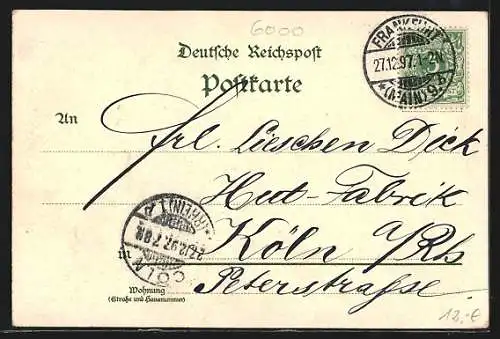 6000
Deutsche Reichspost
Postkarte
FRANKFURT
27.12.97.1-2N.
*(MAIN)9a
An
Frl. Lieschen Dick
Hut-Fabrik
Köln a/Rh
Peterstraße.
(RHEIN)1
27.12.97.7-8N.
CÖLN
in
Wohnung
(Straße und Hausnummer)
12,-€